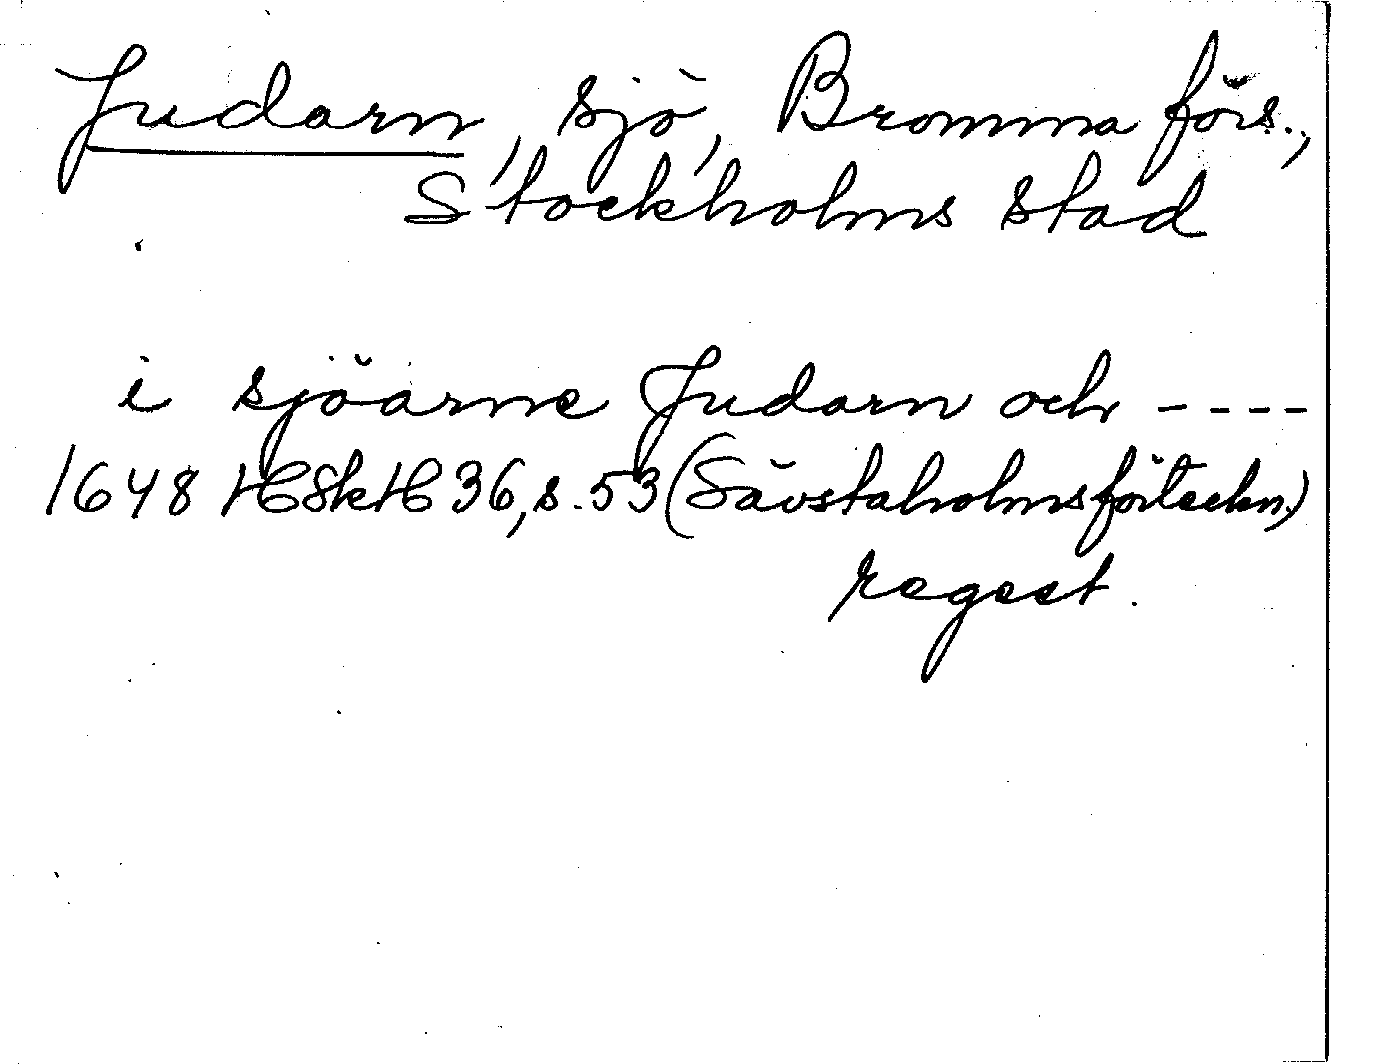 Judarn, sjö, Bromma förs.,
Stockholms stad
i sjöarne Judarn och ----
1648 HSkH 36, s. 53 (Sävstaholmsförteckn.)
regest.